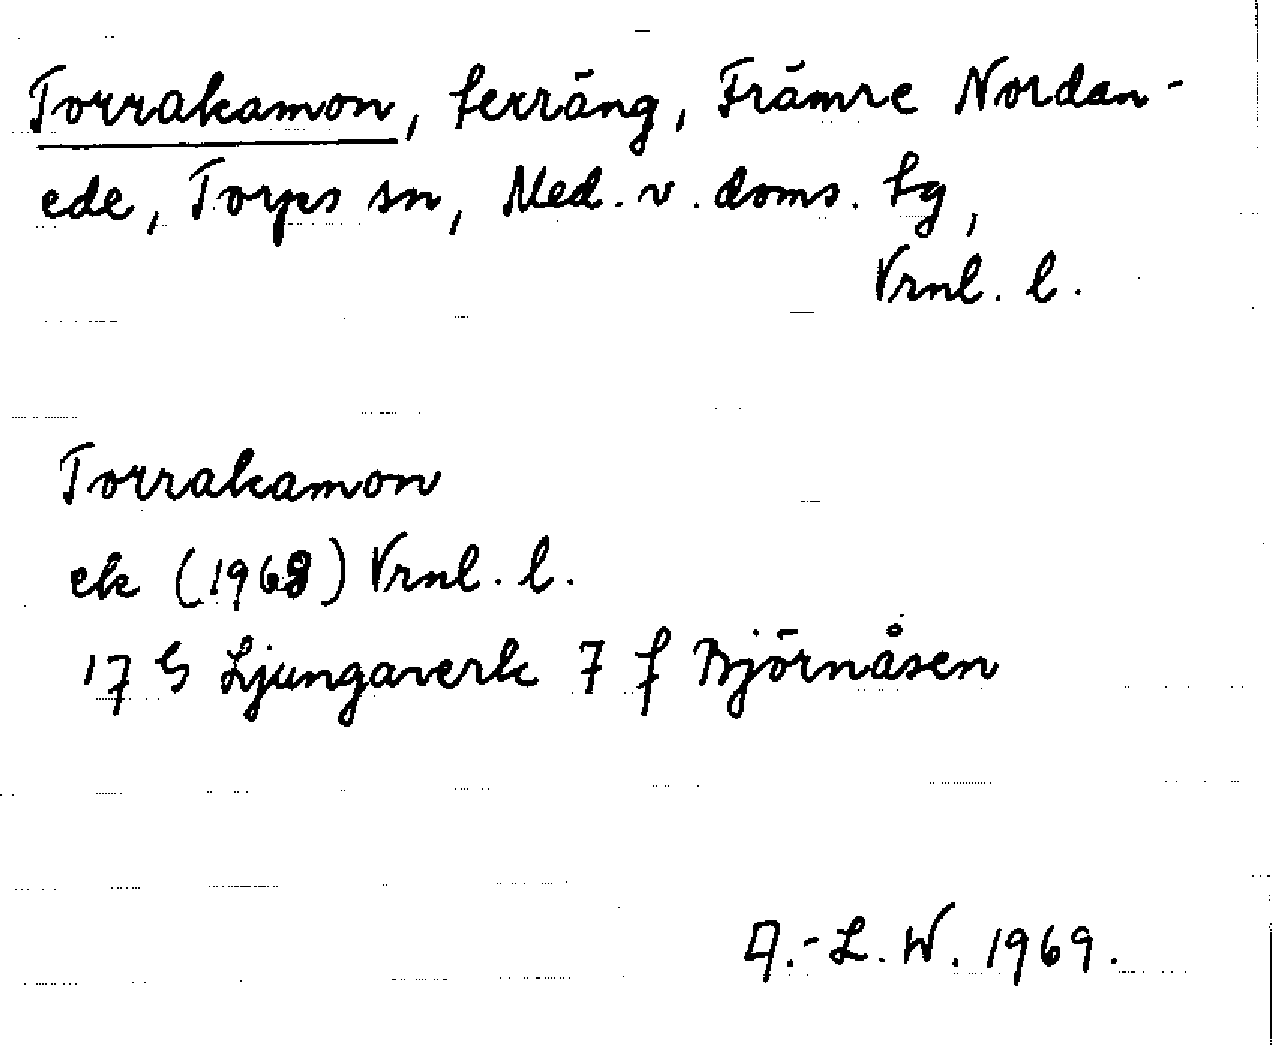 Torrakamon, terräng, Främre Nordan-
ede, Torps sn, Med. v. doms. tg,
Vrnl. l.
Torrakamon
ek (1968) Vrnl. l.
17 G Ljungaverk 7 f Björnåsen
A.-L. W. 1969.